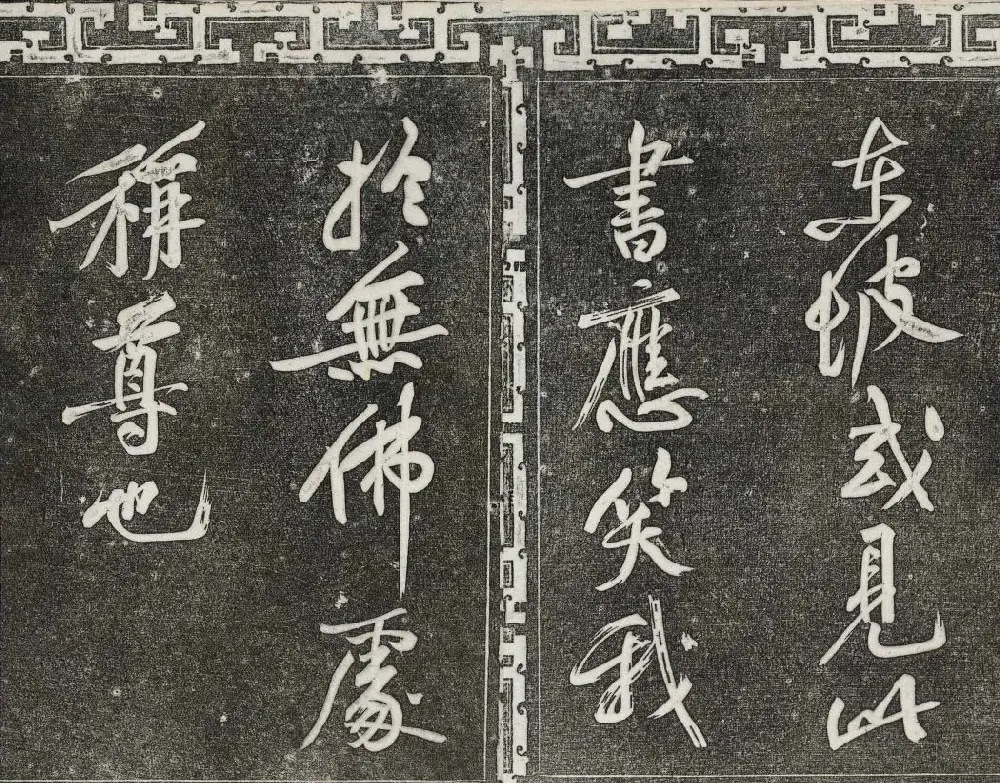 東坡或見此
書應笑我
於無佛處
稱尊也